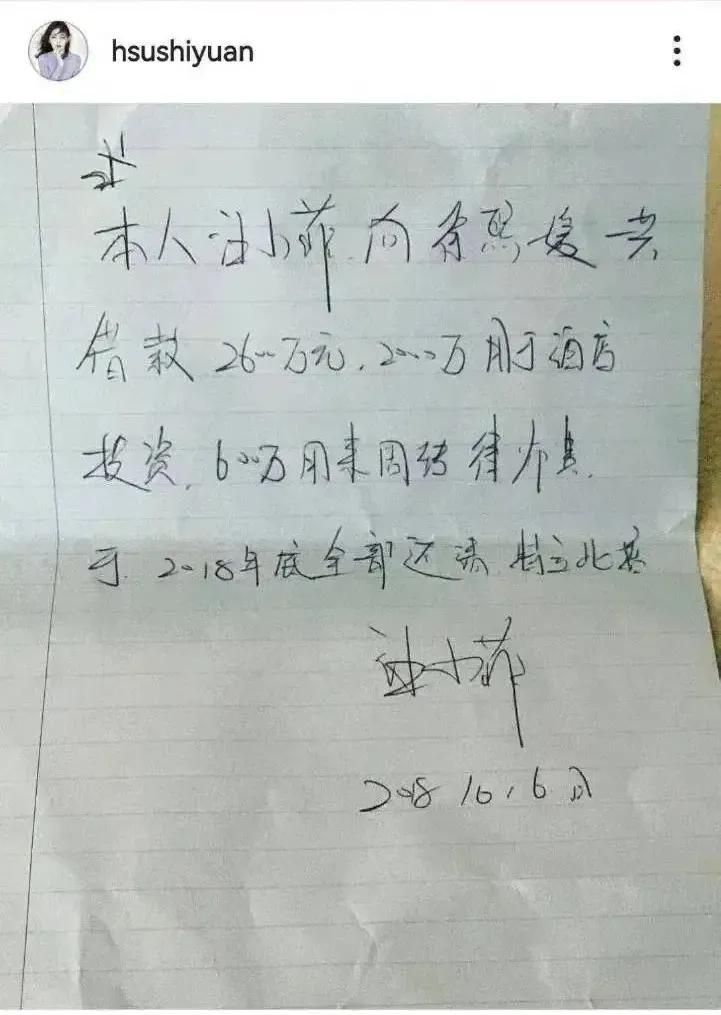 hsushiyuan
本人汪小菲向徐熙媛共
借款2600万元,2000万用于酒店
投资,600万用来周转律师费,
于2018年底全部还清,特立此据
汪小菲
2018 10,6